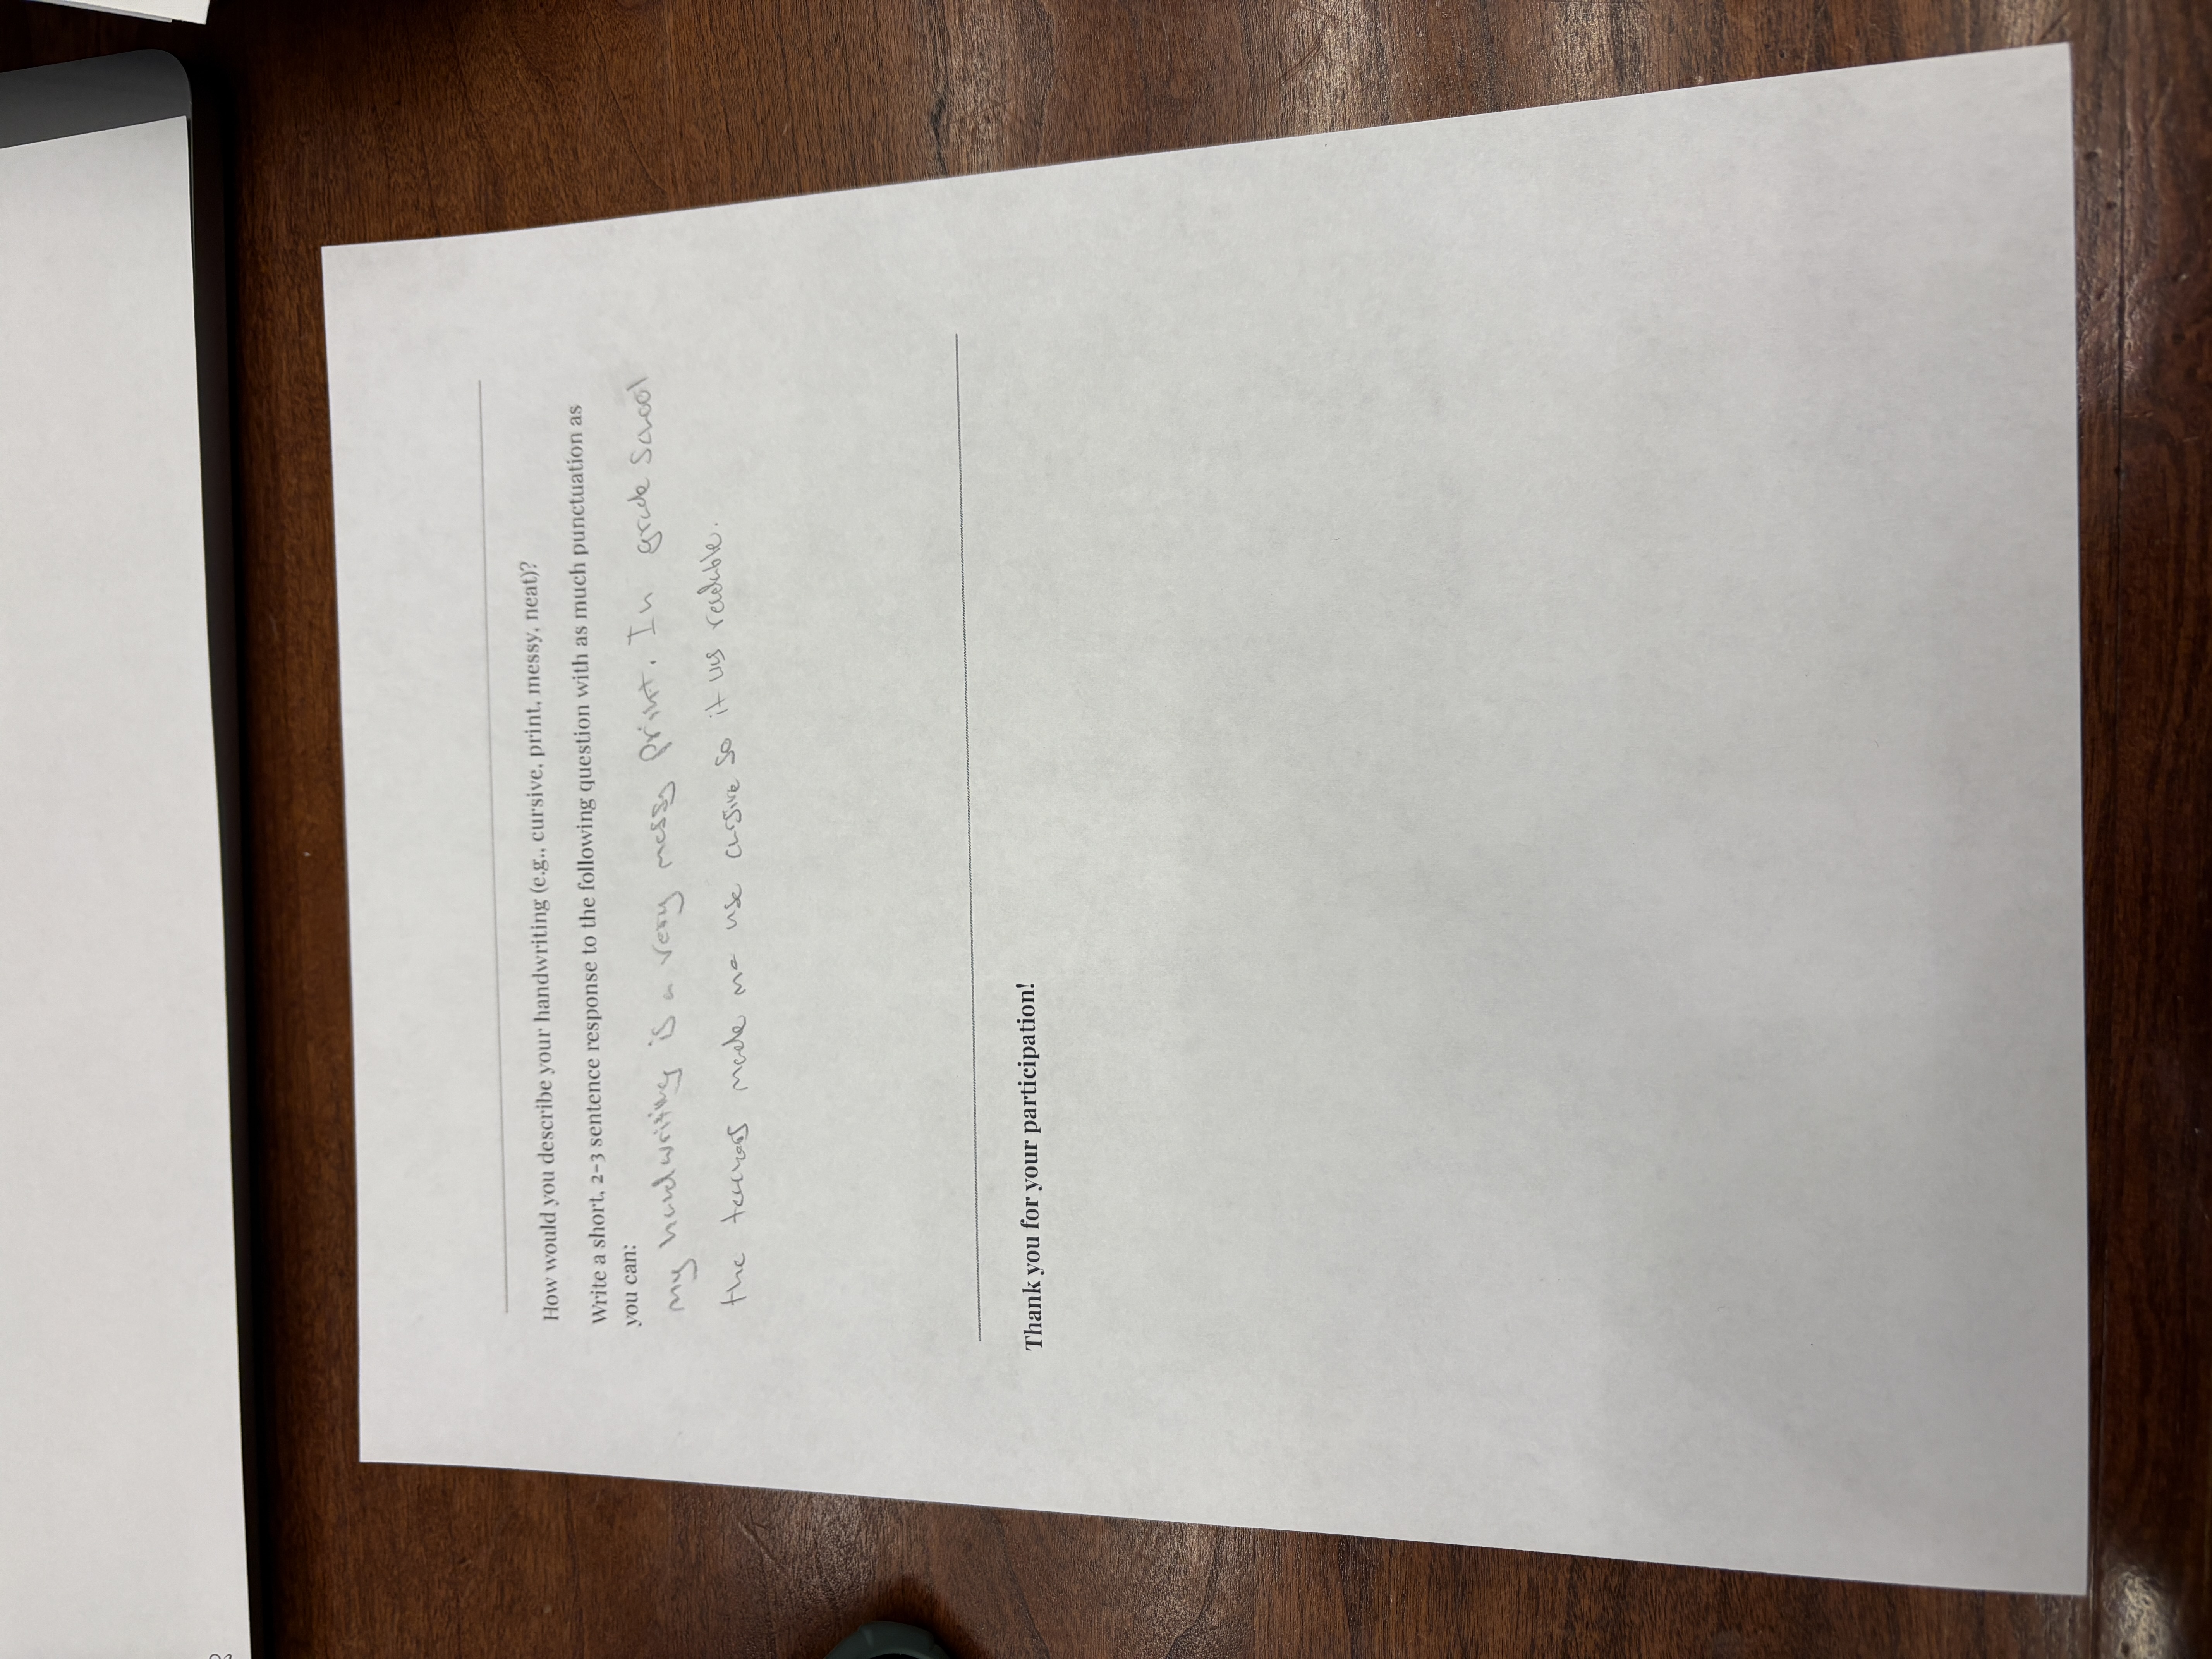 How would you describe your handwriting (e.g., cursive, print, messy, neat)?
Write a short, 2-3 sentence response to the following question with as much punctuation as
you can:
My handwriting is a very messy print. In grade School
the teachers made me use cursive so it was readable.
Thank you for your participation!